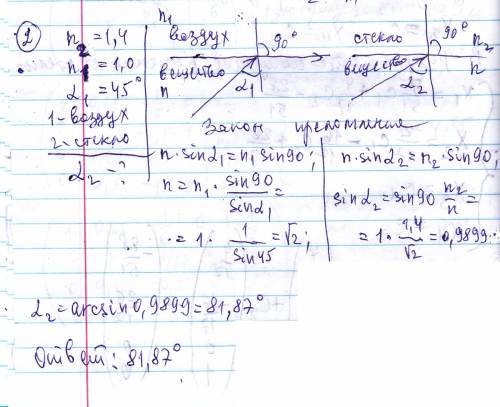 2
n₂ = 1,4
n₁ = 1,0
α₁ = 45°
1 - воздух
2 - стекло
α₂ - ?
n₁
воздух 90°
вещество
n α₁
стекло 90° n₂
вещество n
α₂
Закон преломления
n·sinα₁ = n₁ sin90;
n = n₁ · sin90 / sinα₁ =
= 1 · 1 / sin45 = √2;
n·sinα₂ = n₂·sin90;
sinα₂ = sin90 n₂ / n =
= 1· 1,4 / √2 = 0,9899.
α₂ = arcsin 0,9899 = 81,87°
Ответ: 81,87°